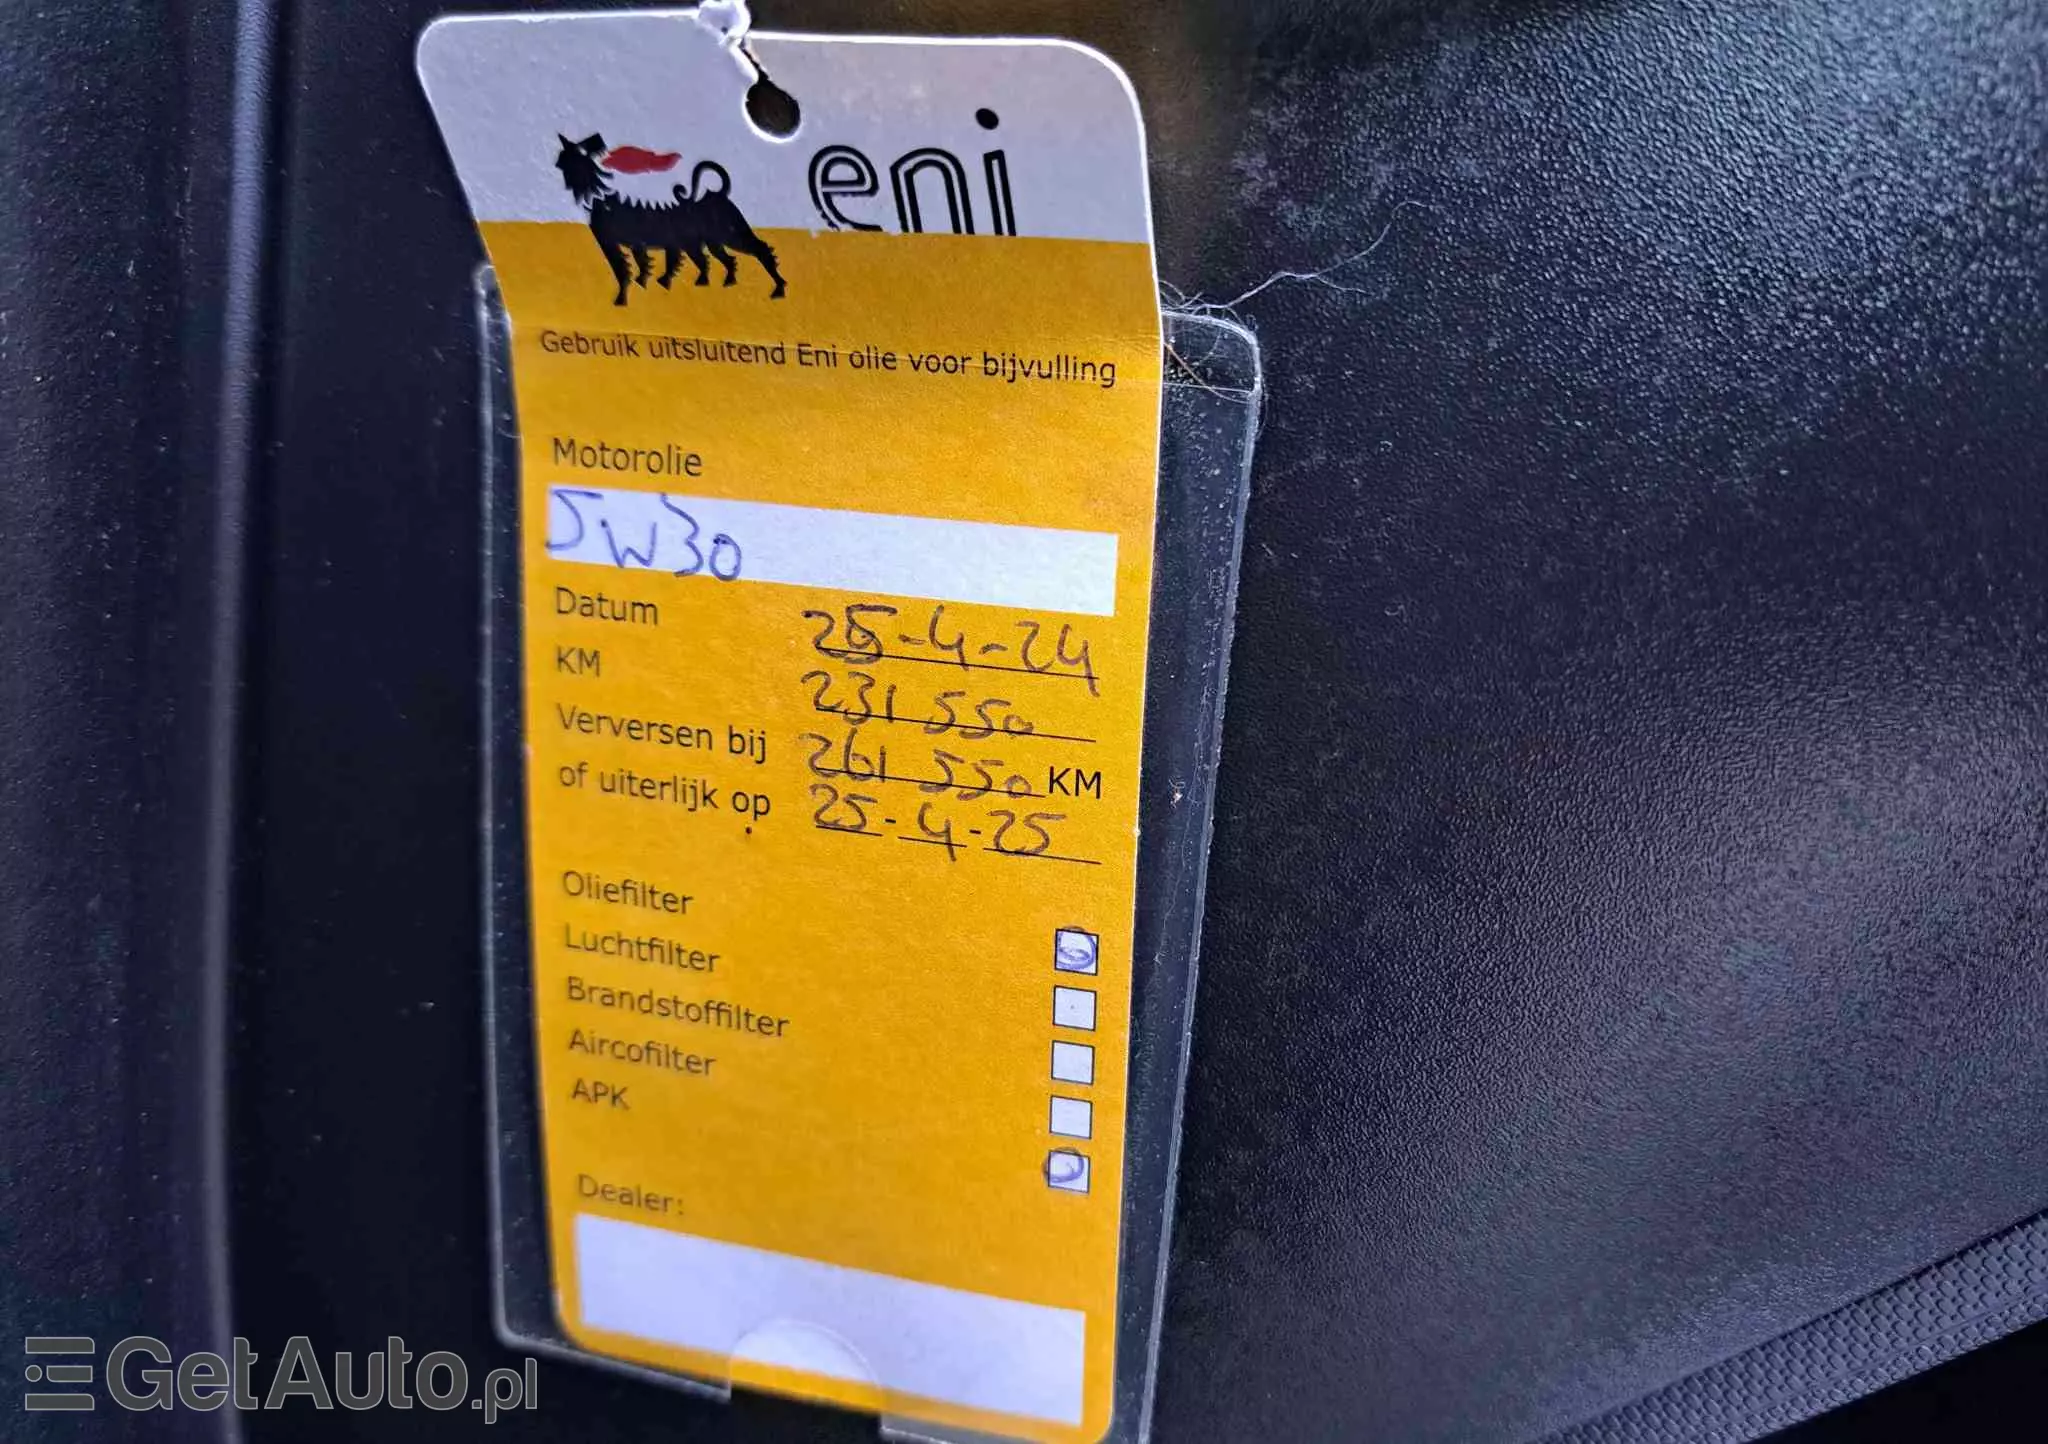 eni
Gebruik uitsluitend Eni olie voor bijvulling
Motorolie
5W30
Datum 25-4-24
KM 231 550
Verversen bij 261 550 KM
of uiterlijk op 25-4-25
Oliefilter
Luchtfilter
Brandstoffilter
Aircofilter
APK
Dealer:
GetAuto.pl